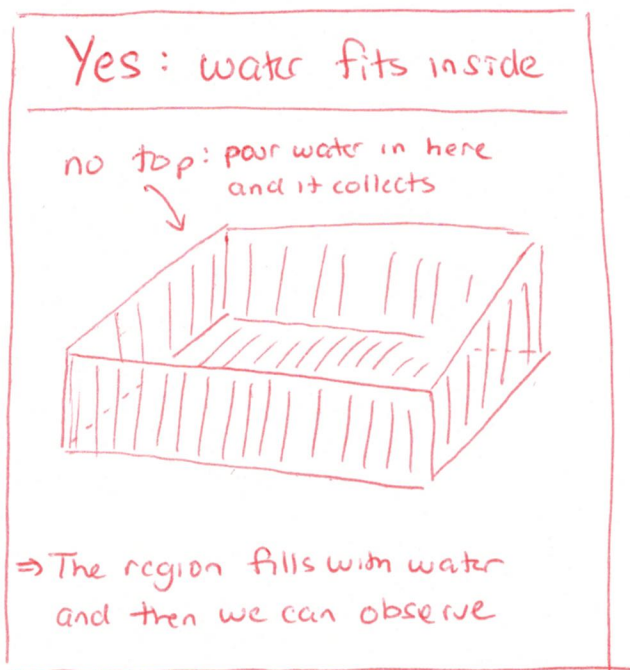 Yes: water fits inside
no top: pour water in here
and it collects
⇒ The region fills with water
and then we can observe